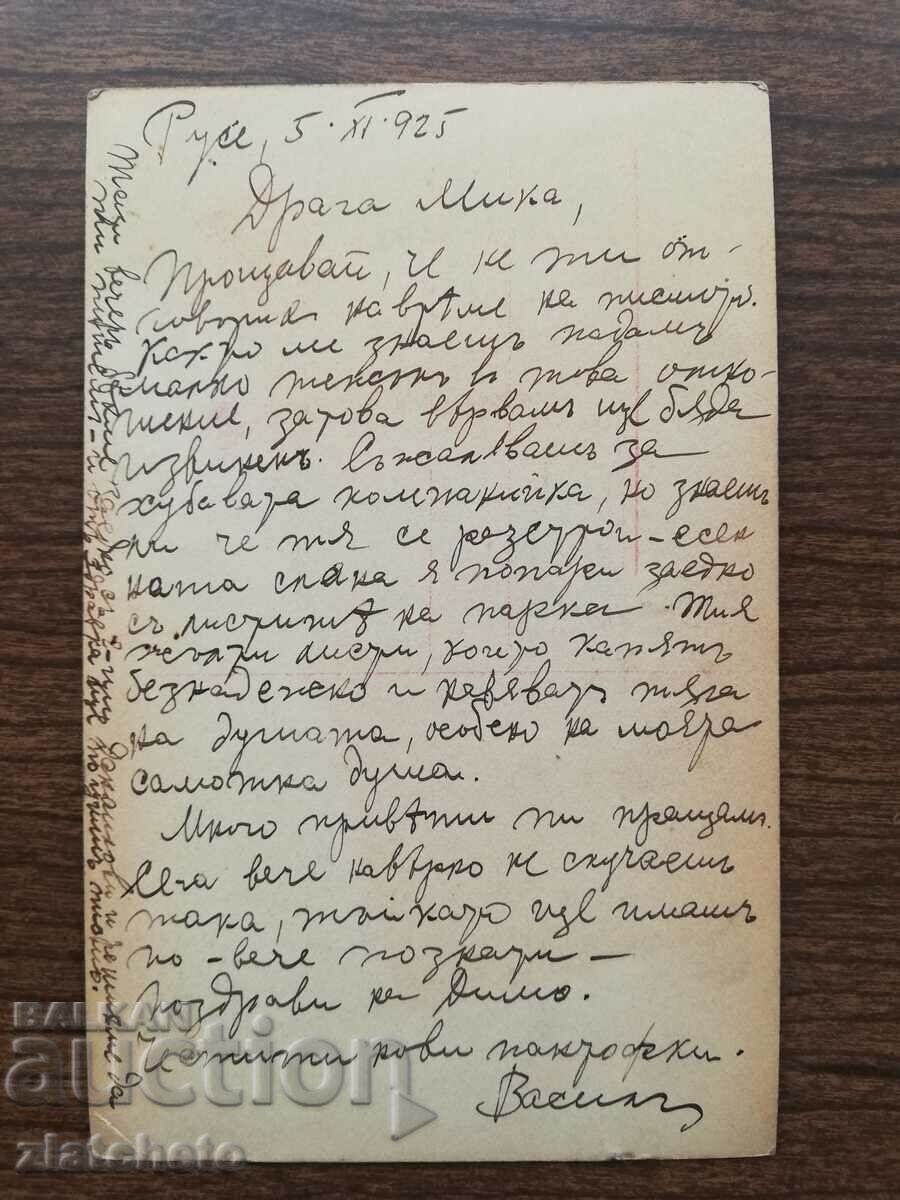 Русе, 5. XI. 925
Драга Мика,
Прощавай, че не ти от-
говорих на врѣме на писмото.
Както ме знаешъ падамъ
малко тексинъ в това отно-
шение, затова вѣрвамъ ще бѫда
извиненъ. Съжалявашъ за
хубавата компанийка, но знаешъ
ли че тя се разстрои – есен
ната слана я попари заедно
съ листитѣ на парка. Тия
жълти листи, които капятъ
безнадежно и навяватъ тѫга
на душата, особено на моята
самотна душа.
Много привѣти ти пращамъ.
Сега вече навѣрно не скучаешъ
така, тъй като ще имашъ
по-вече познати –
Поздрави на Димо.
Честити нови пантофки.
Василъ
Тази вечеръ бѣхме съ г-ца и решихме да
ти пишемъ – и
BALKAN
auction
zlatcheto